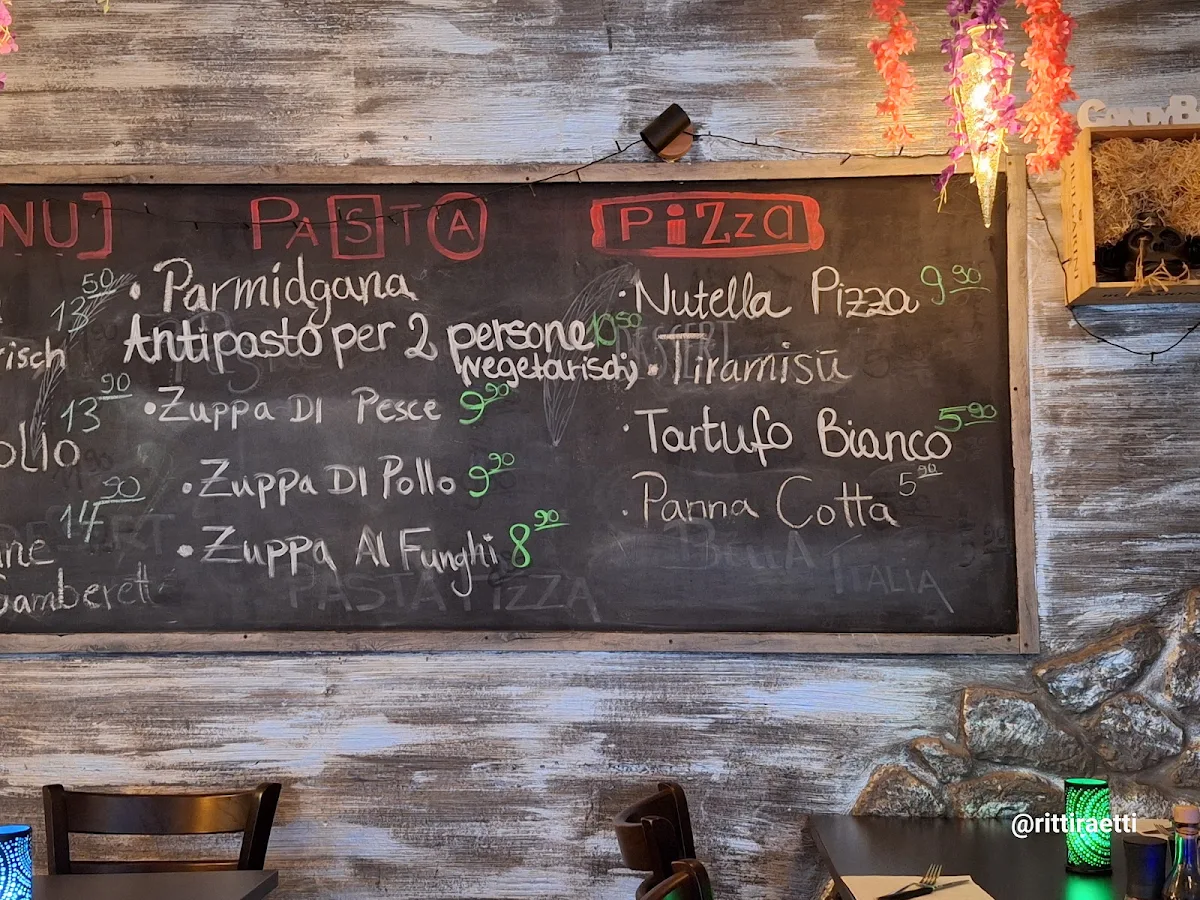 NU]
PASTA
PiZZa
13 50
risch
13 90
ollo
14 90
ne
Gamberett
• Parmidgana
Antipasto per 2 persone 10 50
(vegetarisch)
• Zuppa DI Pesce 9 90
• Zuppa DI Pollo 9 90
• Zuppa Al Funghi 8 90
• Nutella Pizza 9 90
• Tiramisū
• Tartufo Bianco 5 90
• Panna Cotta 5 90
DESSERT
PASTA PIZZA
BELLA ITALIA
CANDYB
@rittiraetti